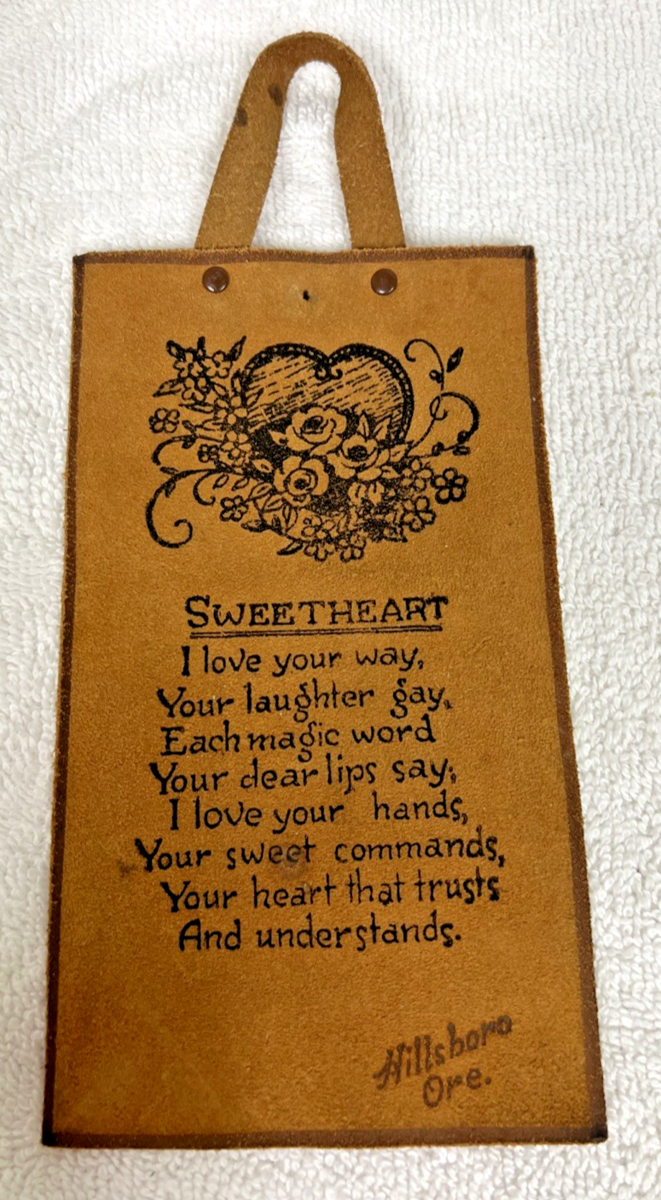 SWEETHEART
I love your way,
Your laughter gay,
Each magic word
Your dear lips say;
I love your hands,
Your sweet commands,
Your heart that trusts
And understands.
Hillsboro
Ore.